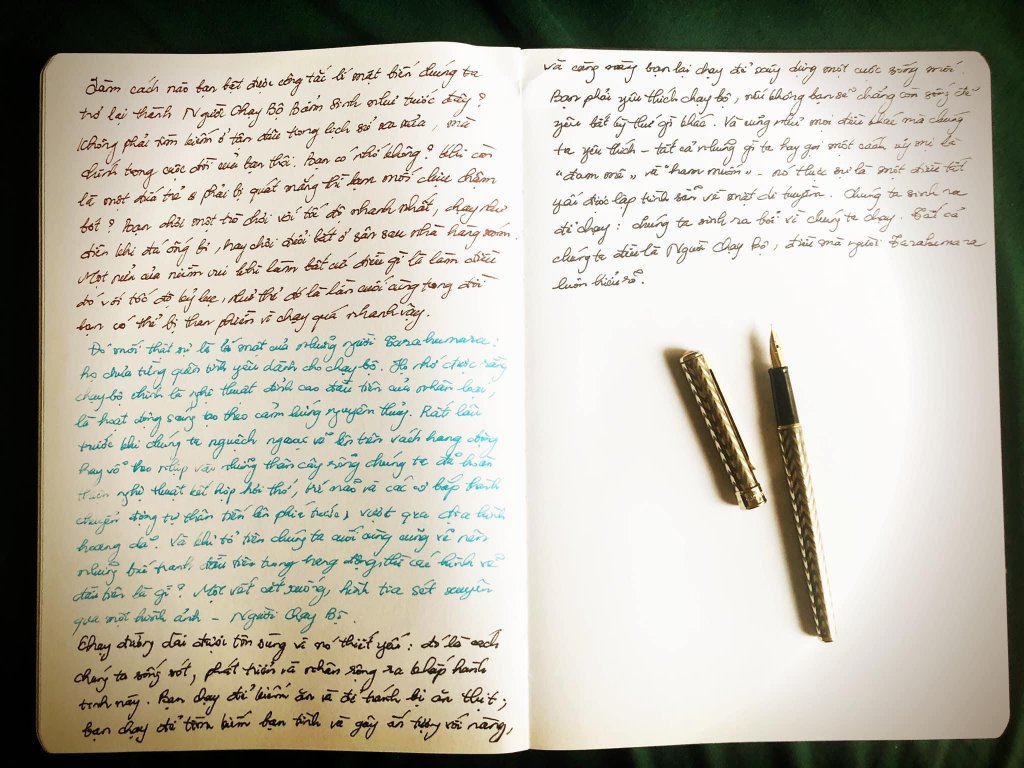 Làm cách nào bạn bật được công tắc bí mật biến chúng ta
trở lại thành Người Chạy Bộ Bẩm Sinh như trước đây?
Không phải tìm kiếm ở tận đâu trong lịch sử xa xưa, mà
chính trong cuộc đời của bạn thôi. Bạn có nhớ không? Khi còn
là một đứa trẻ & phải bị quát mắng thì bạn mới chịu chậm
bớt? Bạn chơi một trò chơi với tốc độ nhanh nhất, chạy như
điên khi đá ống bi, hay chơi đuổi bắt ở sân sau nhà hàng xóm.
Một nửa của niềm vui khi làm bất cứ điều gì là làm điều
đó với tốc độ kỷ lục, như thể đó là lần cuối cùng trong đời
bạn có thể bị than phiền vì chạy quá nhanh vậy.
Đó mới thật sự là bí mật của những người Tarahumara:
họ chưa từng quên tình yêu dành cho chạy bộ. Họ nhớ được rằng
chạy bộ chính là nghệ thuật đỉnh cao đầu tiên của nhân loại,
là hoạt động sáng tạo theo cảm hứng nguyên thủy. Rất lâu
trước khi chúng ta nguệch ngoạc vẽ lên trên vách hang động
hay vỗ theo nhịp vào những thân cây rỗng chúng ta đã hoàn
thiện nghệ thuật kết hợp hơi thở, trí não và các cơ bắp thành
chuyển động tự thân tiến lên phía trước, vượt qua địa hình
hoang dã. Và khi tổ tiên chúng ta cuối cùng cũng vẽ nên
những bức tranh đầu tiên trong hang động, thì các hình vẽ
đầu tiên là gì? Một vết cắt xuống, hình tia sét xuyên
qua một hình ảnh - Người Chạy Bộ.
Chạy đường dài được tôn sùng vì nó thiết yếu: đó là cách
chúng ta sống sót, phát triển và nhân rộng ra khắp hành
tinh này. Bạn chạy để kiếm ăn và để tránh bị ăn thịt;
bạn chạy để tìm kiếm bạn tình và gây ấn tượng với nàng,
và cùng nàng bạn lại chạy để xây dựng một cuộc sống mới.
Bạn phải yêu thích chạy bộ, nếu không bạn sẽ chẳng còn sống để
yêu bất kỳ thứ gì khác. Và cũng như mọi điều khác mà chúng
ta yêu thích - tất cả những gì ta hay gọi một cách uỷ mị là
"đam mê" và "ham muốn" - nó thực sự là một điều tất
yếu được lập trình sẵn về mặt di truyền. Chúng ta sinh ra
để chạy; chúng ta sinh ra bởi vì chúng ta chạy. Tất cả
chúng ta đều là Người Chạy Bộ, điều mà người Tarahumara
luôn hiểu rõ.